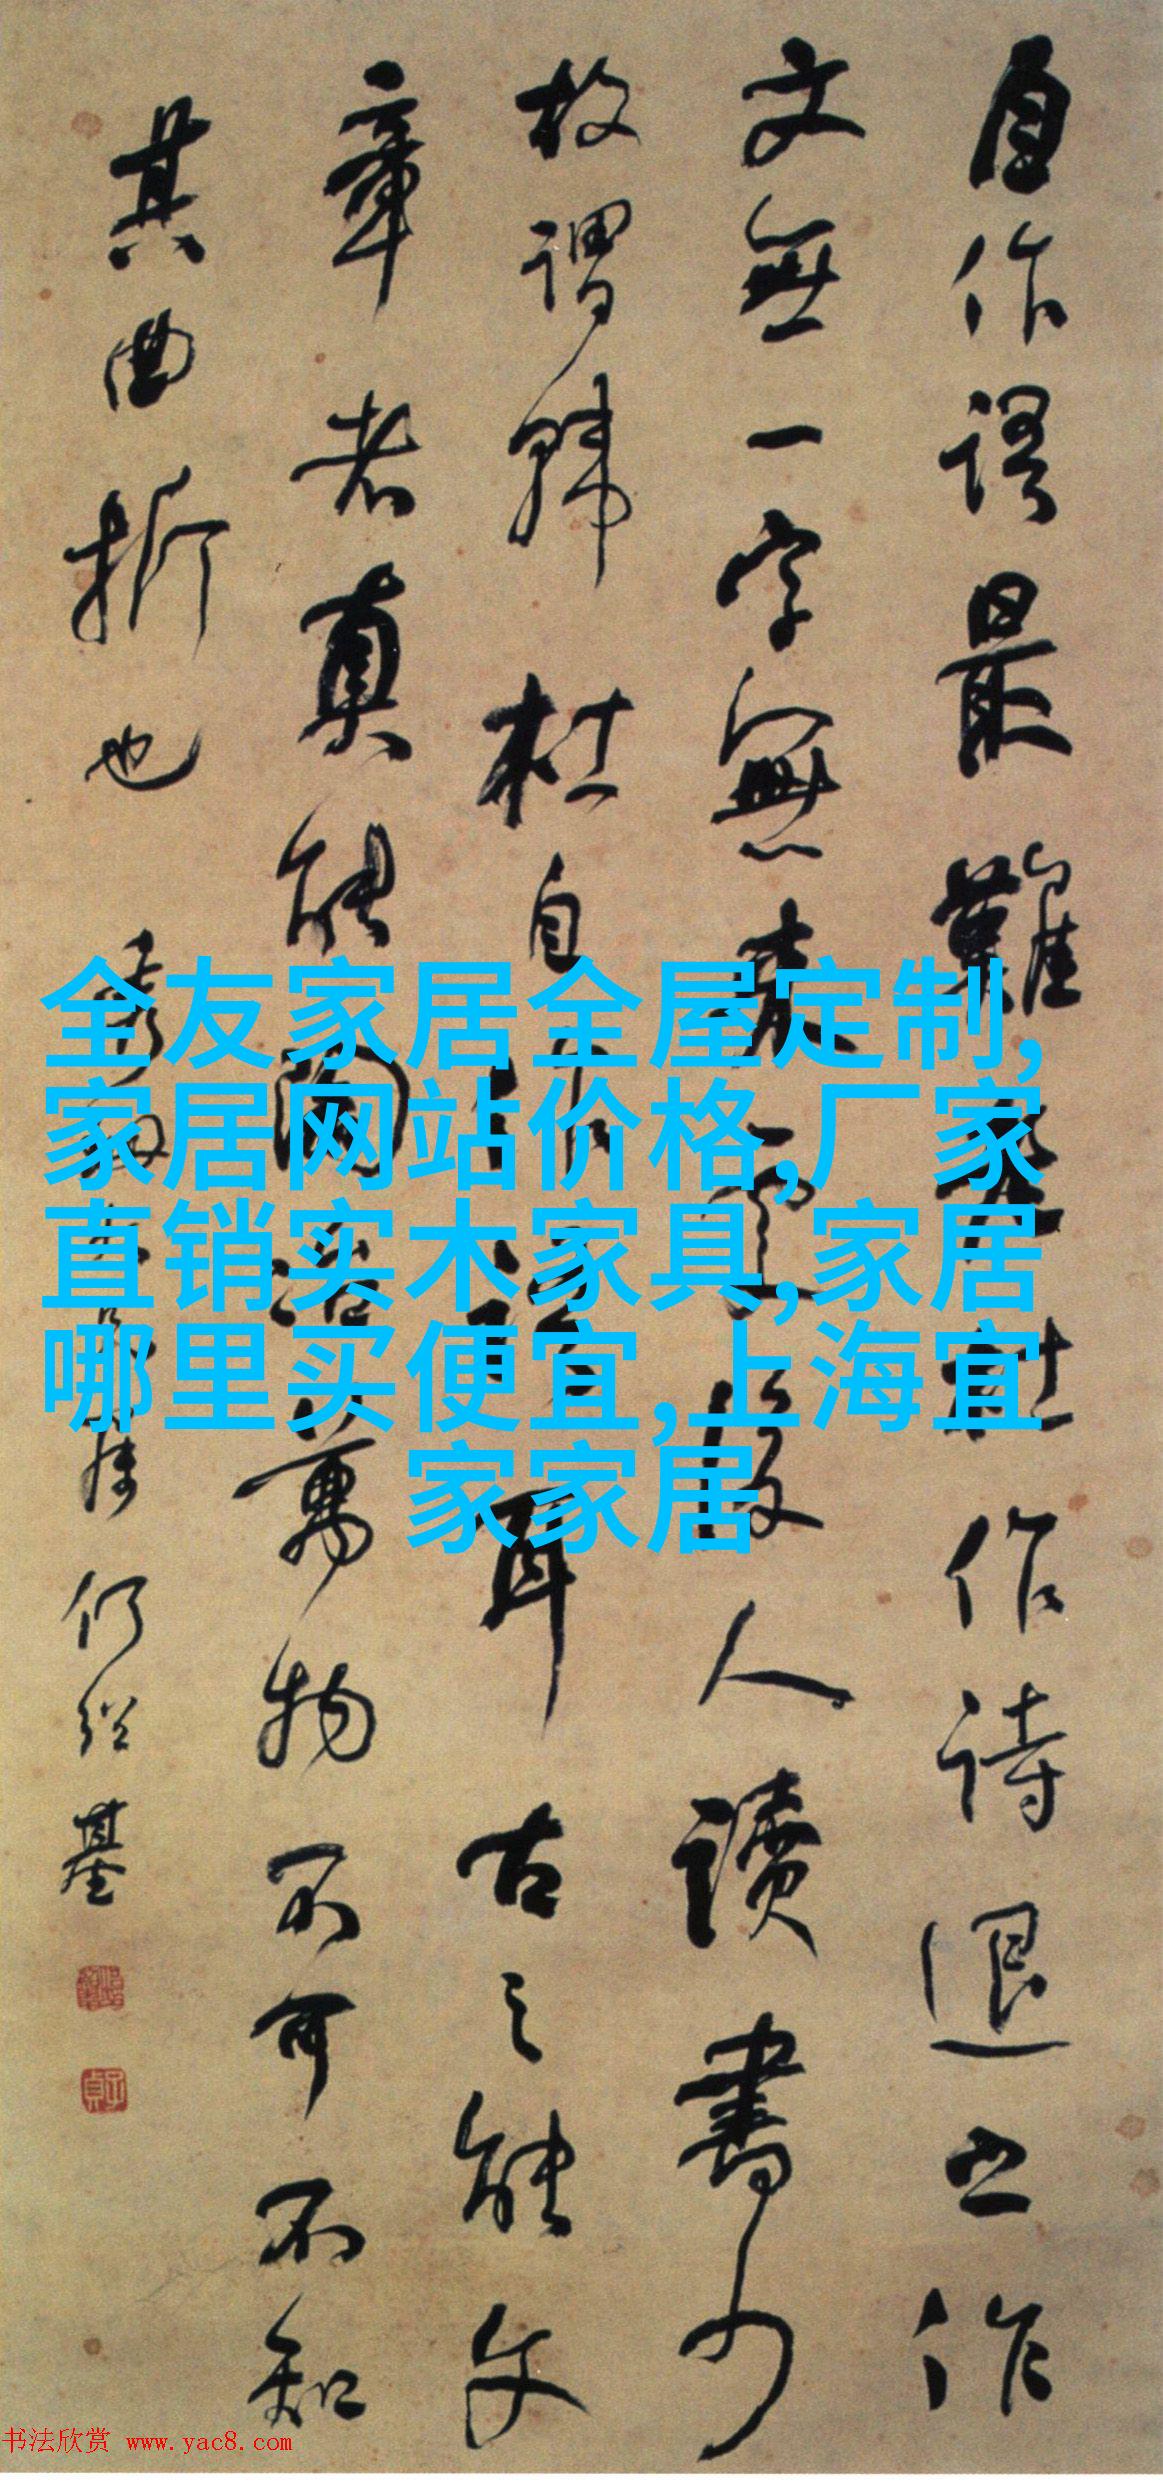 自作语最難老杜作诗退之作
文無一字無来處後人读書少
故謂韩杜自作此语耳古之能文
章者真能陶冶萬物不可不知
其曲折也
仍缵基
全友家居全屋定制,
家居网站价格,厂家
直销实木家具,家居
哪里买便宜,上海宜
家家居
书法欣赏 www.yac8.com